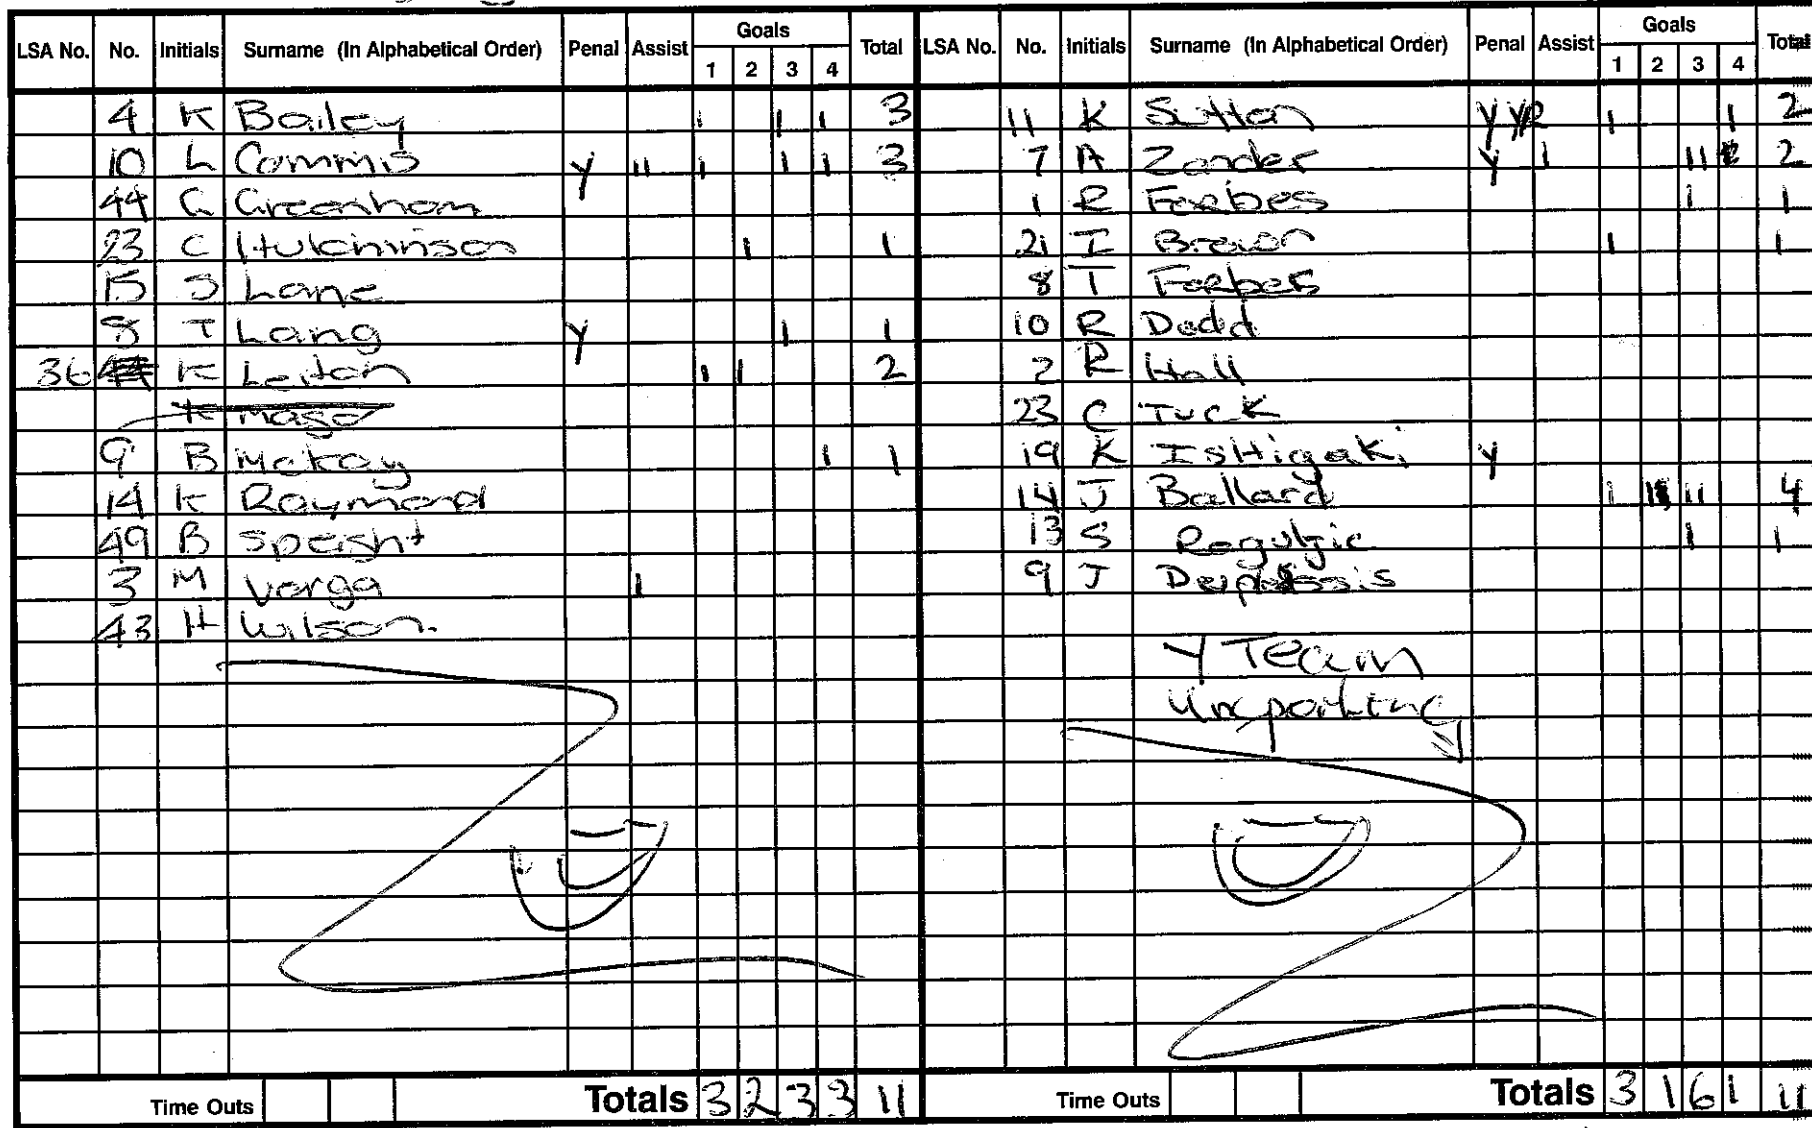 LSA No. No. Initials Surname (In Alphabetical Order) Penal Assist Goals 1 2 3 4 Total
4 K Bailey 1 1 1 3
10 L Commis Y 11 1 1 1 3
44 G Greenham
23 C Hutchinson 1 1
15 S Lane
8 T Lang Y 1 1
36 K Leiton 1 1 2
K Mago
9 B Mckay 1 1
14 K Raymond
49 B Speight
3 M Varga 1
43 H Wilson.
Time Outs Totals 3 2 3 3 11
LSA No. No. Initials Surname (In Alphabetical Order) Penal Assist Goals 1 2 3 4 Total
11 K Sutton Y Y R 1 1 2
7 A Zander Y 1 11 2
1 R Forbes 1 1
21 I Brown 1 1
8 T Forbes
10 R Dodd
2 R Hall
23 C Tuck
19 K IsHigaki Y
14 J Ballard 1 1 11 4
13 S 1 1
9 J
Y Team
Time Outs Totals 3 1 6 1 11